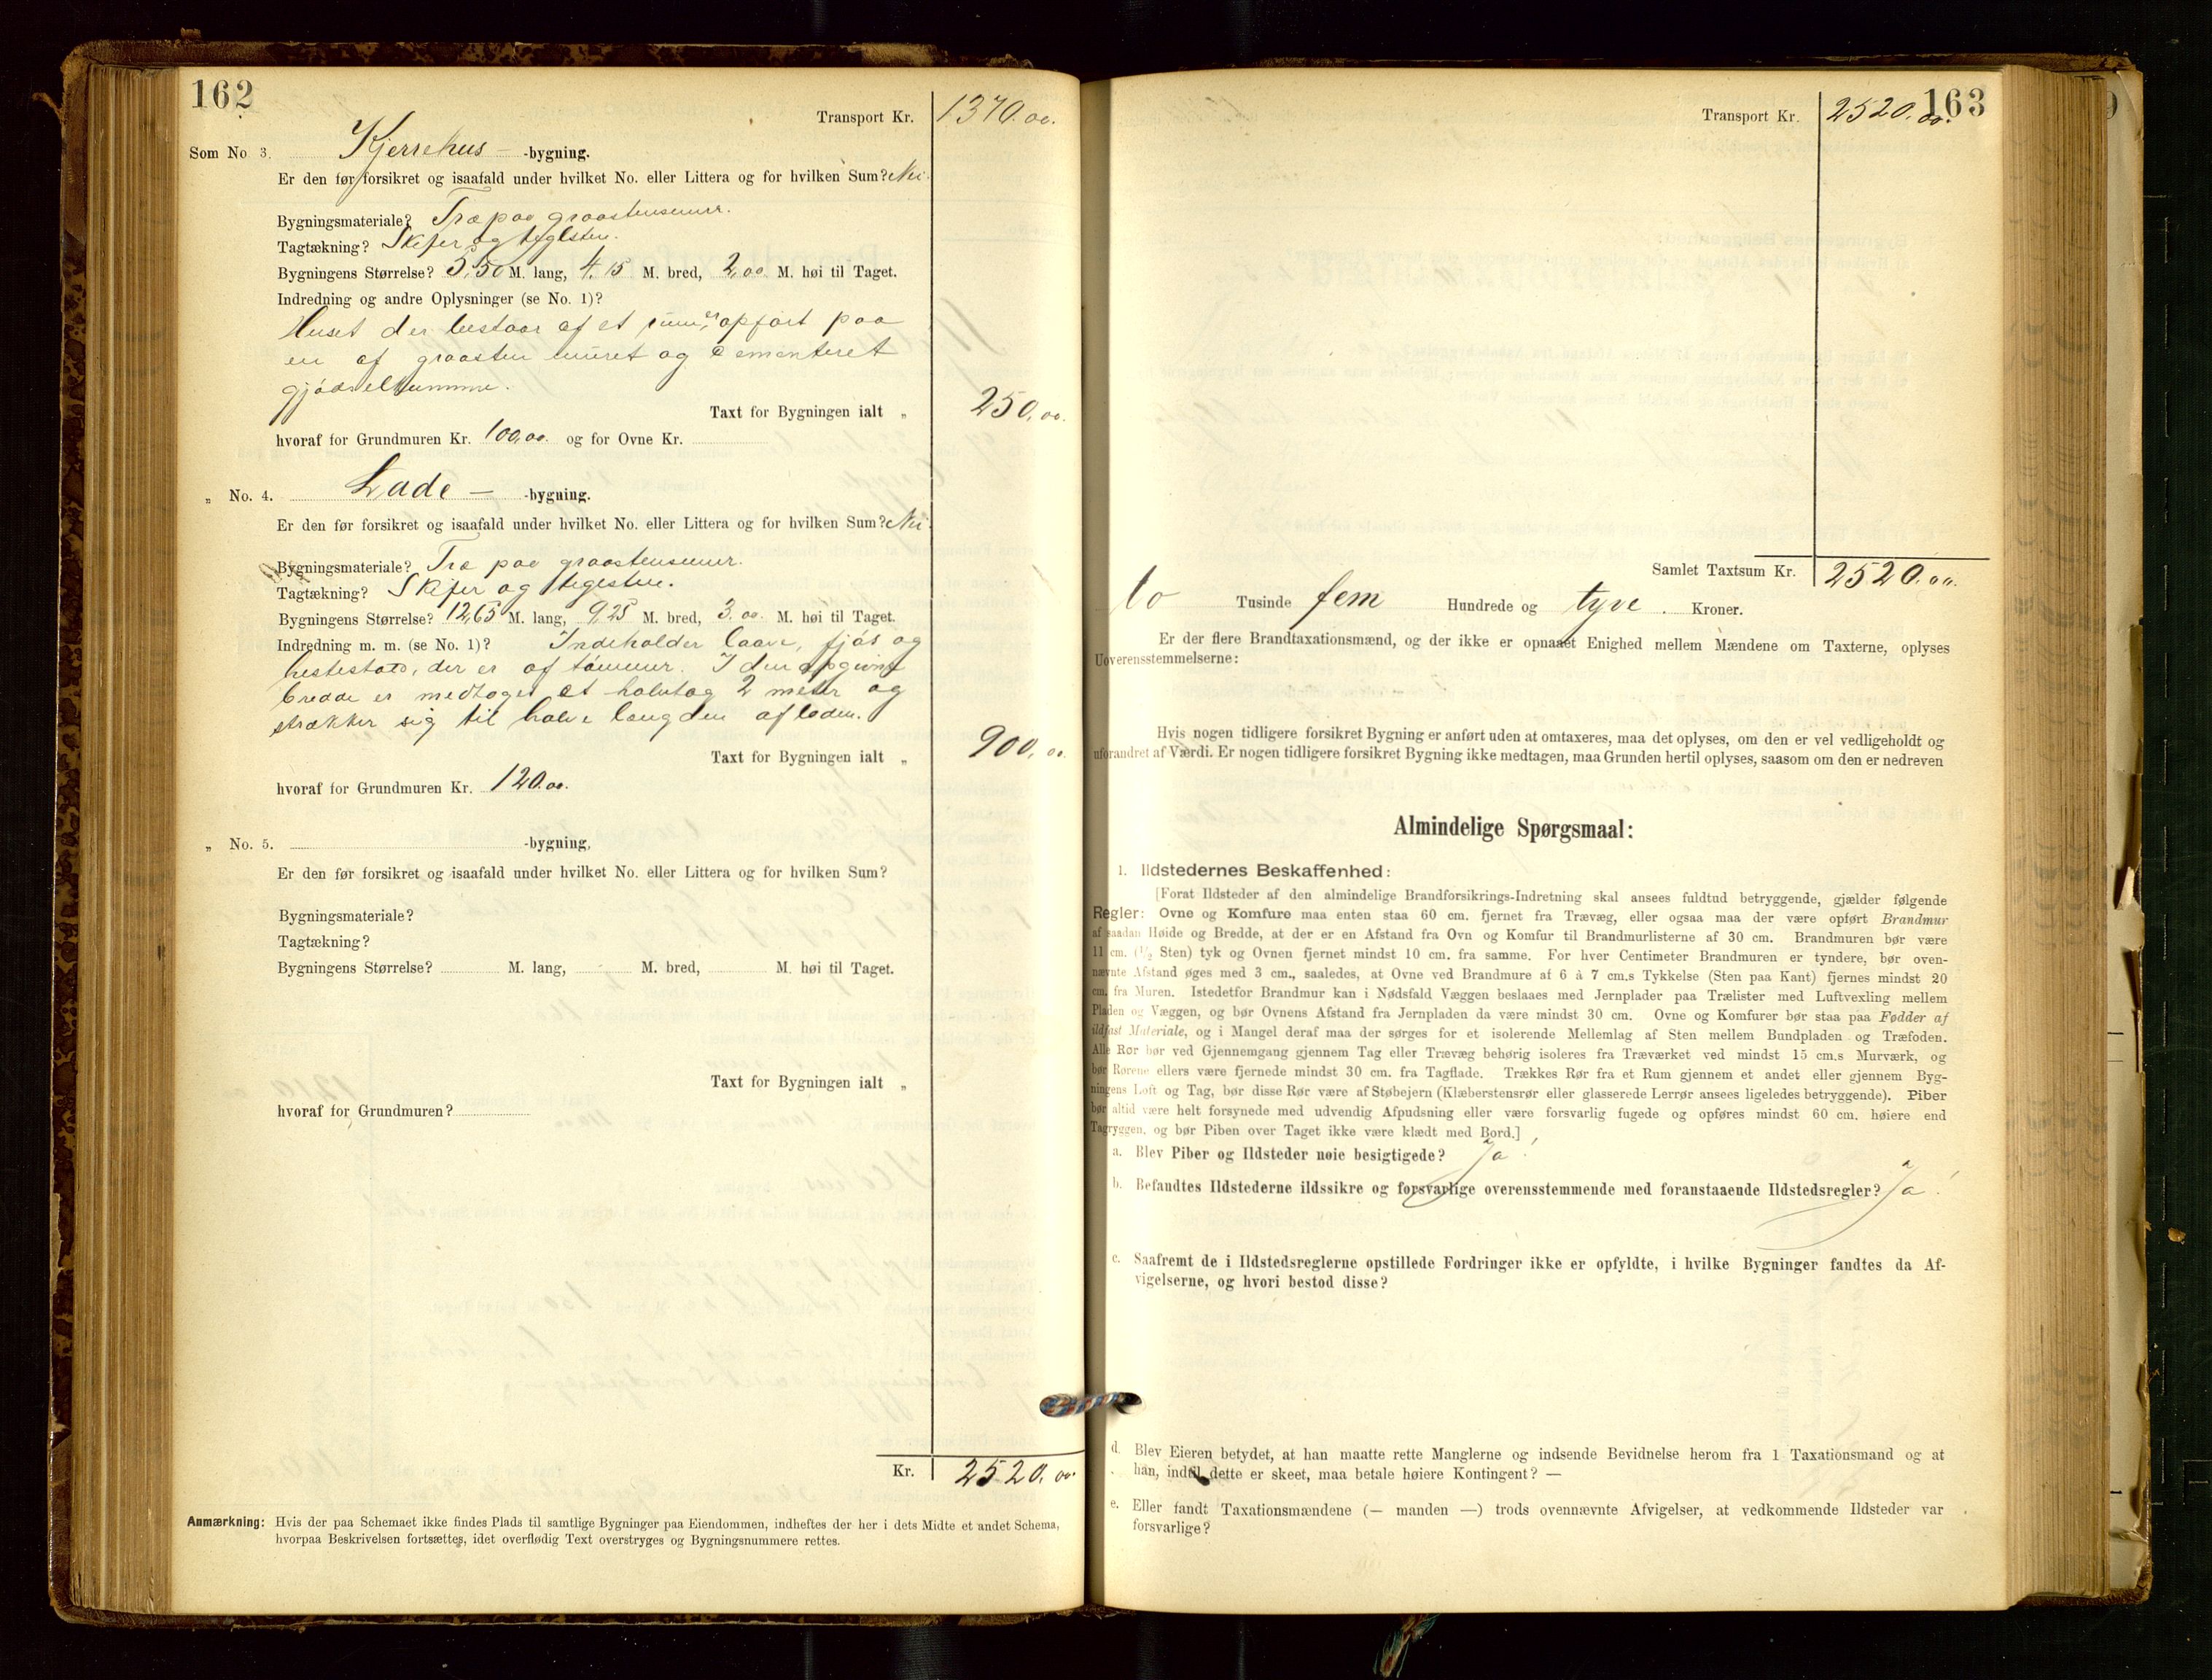 162
Transport Kr. 1370.00.
Som No 3. Kjerrehus - -bygning.
Er den før forsikret og isaafald under hvilket No. eller Littera og for hvilken Sum? Nei.
Bygningsmateriale? Træ paa graastensmur.
Tagtækning? Skifer og teglsten.
Bygningens Størrelse? 5,50 M. lang, 4,15 M. bred, 2,00 M. høi til Taget.
Indredning og andre Oplysninger (se No. 1)?
Huset der bestaar af et rum, er opført paa
en af graasten muret og cementeret
gjødselkumme.
Taxt for Bygningen ialt „ 250,00.
hvoraf for Grundmuren Kr. 100,00. og for Ovne Kr.
„ No. 4. Lade - -bygning.
Er den før forsikret og isaafald under hvilket No. eller Littera og for hvilken Sum? Nei.
Bygningsmateriale? Træ paa graastensmur.
Tagtækning? Skifer og tegsten.
Bygningens Størrelse? 12,65 M. lang, 9,25 M. bred, 3,00. M. høi til Taget.
Indredning m. m. (se No. 1)? Indeholder laave, fjøs og
hestestald, der er af tømmer. I den opgivne
bredde er medtaget et halvtag 2 meter og
strækker sig til halve længden af laden.
Taxt for Bygningen ialt „ 900,00.
hvoraf for Grundmuren Kr. 120.00.
„ No. 5. -bygning,
Er den før forsikret og isaafald under hvilket No. eller Littera og for hvilken Sum?
Bygningsmateriale?
Tagtækning?
Bygningens Størrelse? M. lang, M. bred, M. høi til Taget.
Taxt for Bygningen ialt „
hvoraf for Grundmuren?
Kr. 2520.00.
Anmærkning: Hvis der paa Schemaet ikke findes Plads til samtlige Bygninger paa Eiendommen, indheftes der her i dets Midte et andet Schema,
hvorpaa Beskrivelsen fortsættes, idet overflødig Text overstryges og Bygningsnummere rettes.
163
Transport Kr. 2520.00.
Samlet Taxtsum Kr. 2520.00.
to Tusinde fem Hundrede og tyve. Kroner.
Er der flere Brandtaxationsmænd, og der ikke er opnaaet Enighed mellem Mændene om Taxterne, oplyses
Uoverensstemmelserne:
Hvis nogen tidligere forsikret Bygning er anført uden at omtaxeres, maa det oplyses, om den er vel vedligeholdt og
uforandret af Værdi. Er nogen tidligere forsikret Bygning ikke medtagen, maa Grunden hertil oplyses, saasom om den er nedreven
Almindelige Spørgsmaal:
1. Ildstedernes Beskaffenhed:
[Forat Ildsteder af den almindelige Brandforsikrings-Indretning skal ansees fuldtud betryggende, gjælder følgende
Regler: Ovne og Komfure maa enten staa 60 cm. fjernet fra Trævæg, eller ogsaa maa der være opført Brandmur
af saadan Høide og Bredde, at der er en Afstand fra Ovn og Komfur til Brandmurlisterne af 30 cm. Brandmuren bør være
11 cm. (1/2 Sten) tyk og Ovnen fjernet mindst 10 cm. fra samme. For hver Centimeter Brandmuren er tyndere, bør oven-
nævnte Afstand øges med 3 cm., saaledes, at Ovne ved Brandmure af 6 à 7 cm.s Tykkelse (Sten paa Kant) fjernes mindst 20
cm. fra Muren. Istedetfor Brandmur kan i Nødsfald Væggen beslaaes med Jernplader paa Trælister med Luftvexling mellem
Pladen og Væggen, og bør Ovnens Afstand fra Jernpladen da være mindst 30 cm. Ovne og Komfurer bør staa paa Fødder af
ildfast Materiale, og i Mangel deraf maa der sørges for et isolerende Mellemlag af Sten mellem Bundpladen og Træfoden.
Alle Rør bør ved Gjennemgang gjennem Tag eller Trævæg behørig isoleres fra Træværket ved mindst 15 cm.s Murværk, og
bør Rørene ellers være fjernede mindst 30 cm. fra Tagflade. Trækkes Rør fra et Rum gjennem et andet eller gjennem Byg-
ningens Loft og Tag, bør disse Rør være af Støbejern (Klæberstensrør eller glasserede Lerrør ansees ligeledes betryggende). Piber
bør altid være helt forsynede med udvendig Afpudsning eller være forsvarlig fugede og opføres mindst 60 cm. høiere end
Tagryggen, og bør Piben over Taget ikke være klædt med Bord.]
a. Blev Piber og Ildsteder nøie besigtigede? Ja!
b. Befandtes Ildstederne ildssikre og forsvarlige overensstemmende med foranstaaende Ildstedsregler? Ja!
c. Saafremt de i Ildstedsreglerne opstillede Fordringer ikke er opfyldte, i hvilke Bygninger fandtes da Af-
vigelserne, og hvori bestod disse?
d. Blev Eieren betydet, at han maatte rette Manglerne og indsende Bevidnelse herom fra 1 Taxationsmand og at
han, indtil dette er skeet, maa betale høiere Kontingent? —
e. Eller fandt Taxationsmændene (— manden —) trods ovennævnte Afvigelser, at vedkommende Ildsteder var
forsvarlige?